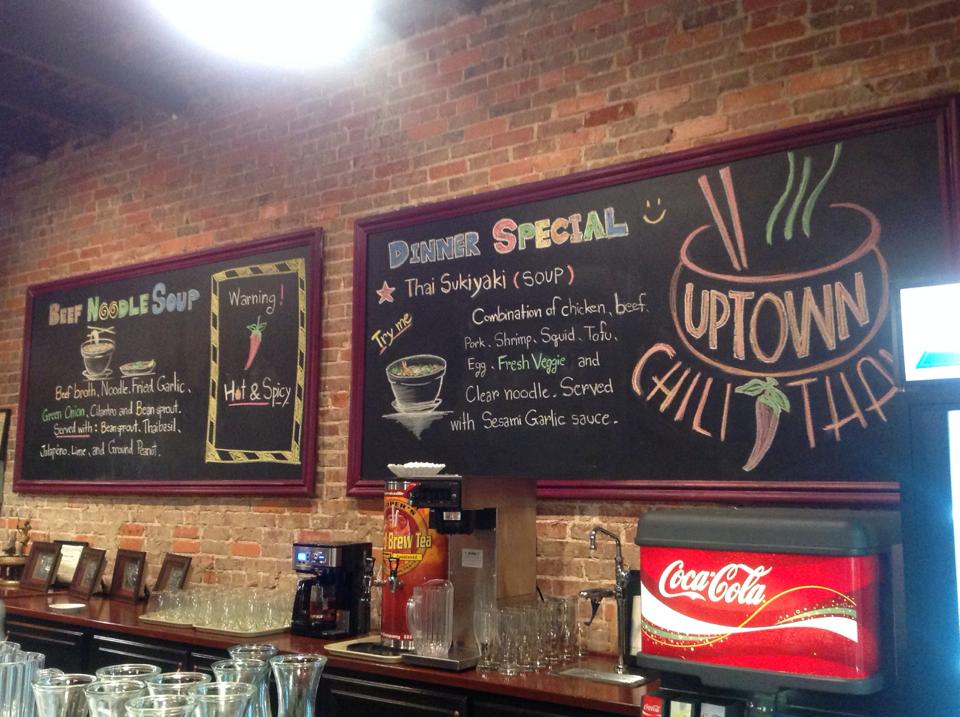 BEEF NOODLE SOUP
Beef broth, Noodle, Fried Garlic,
Green Onion, Cilantro and Bean sprout.
Served with : Bean sprout, Thai basil,
Jalapeño, Lime, and Ground Peanut.
Warning!
Hot & Spicy
DINNER SPECIAL
Thai Sukiyaki (SOUP)
Try me
Combination of chicken, beef,
Pork, Shrimp, Squid, Tofu,
Egg, Fresh Veggie and
Clear noodle. Served
with Sesami Garlic sauce.
UPTOWN
CHILI THAI
Brew Tea
Coca-Cola